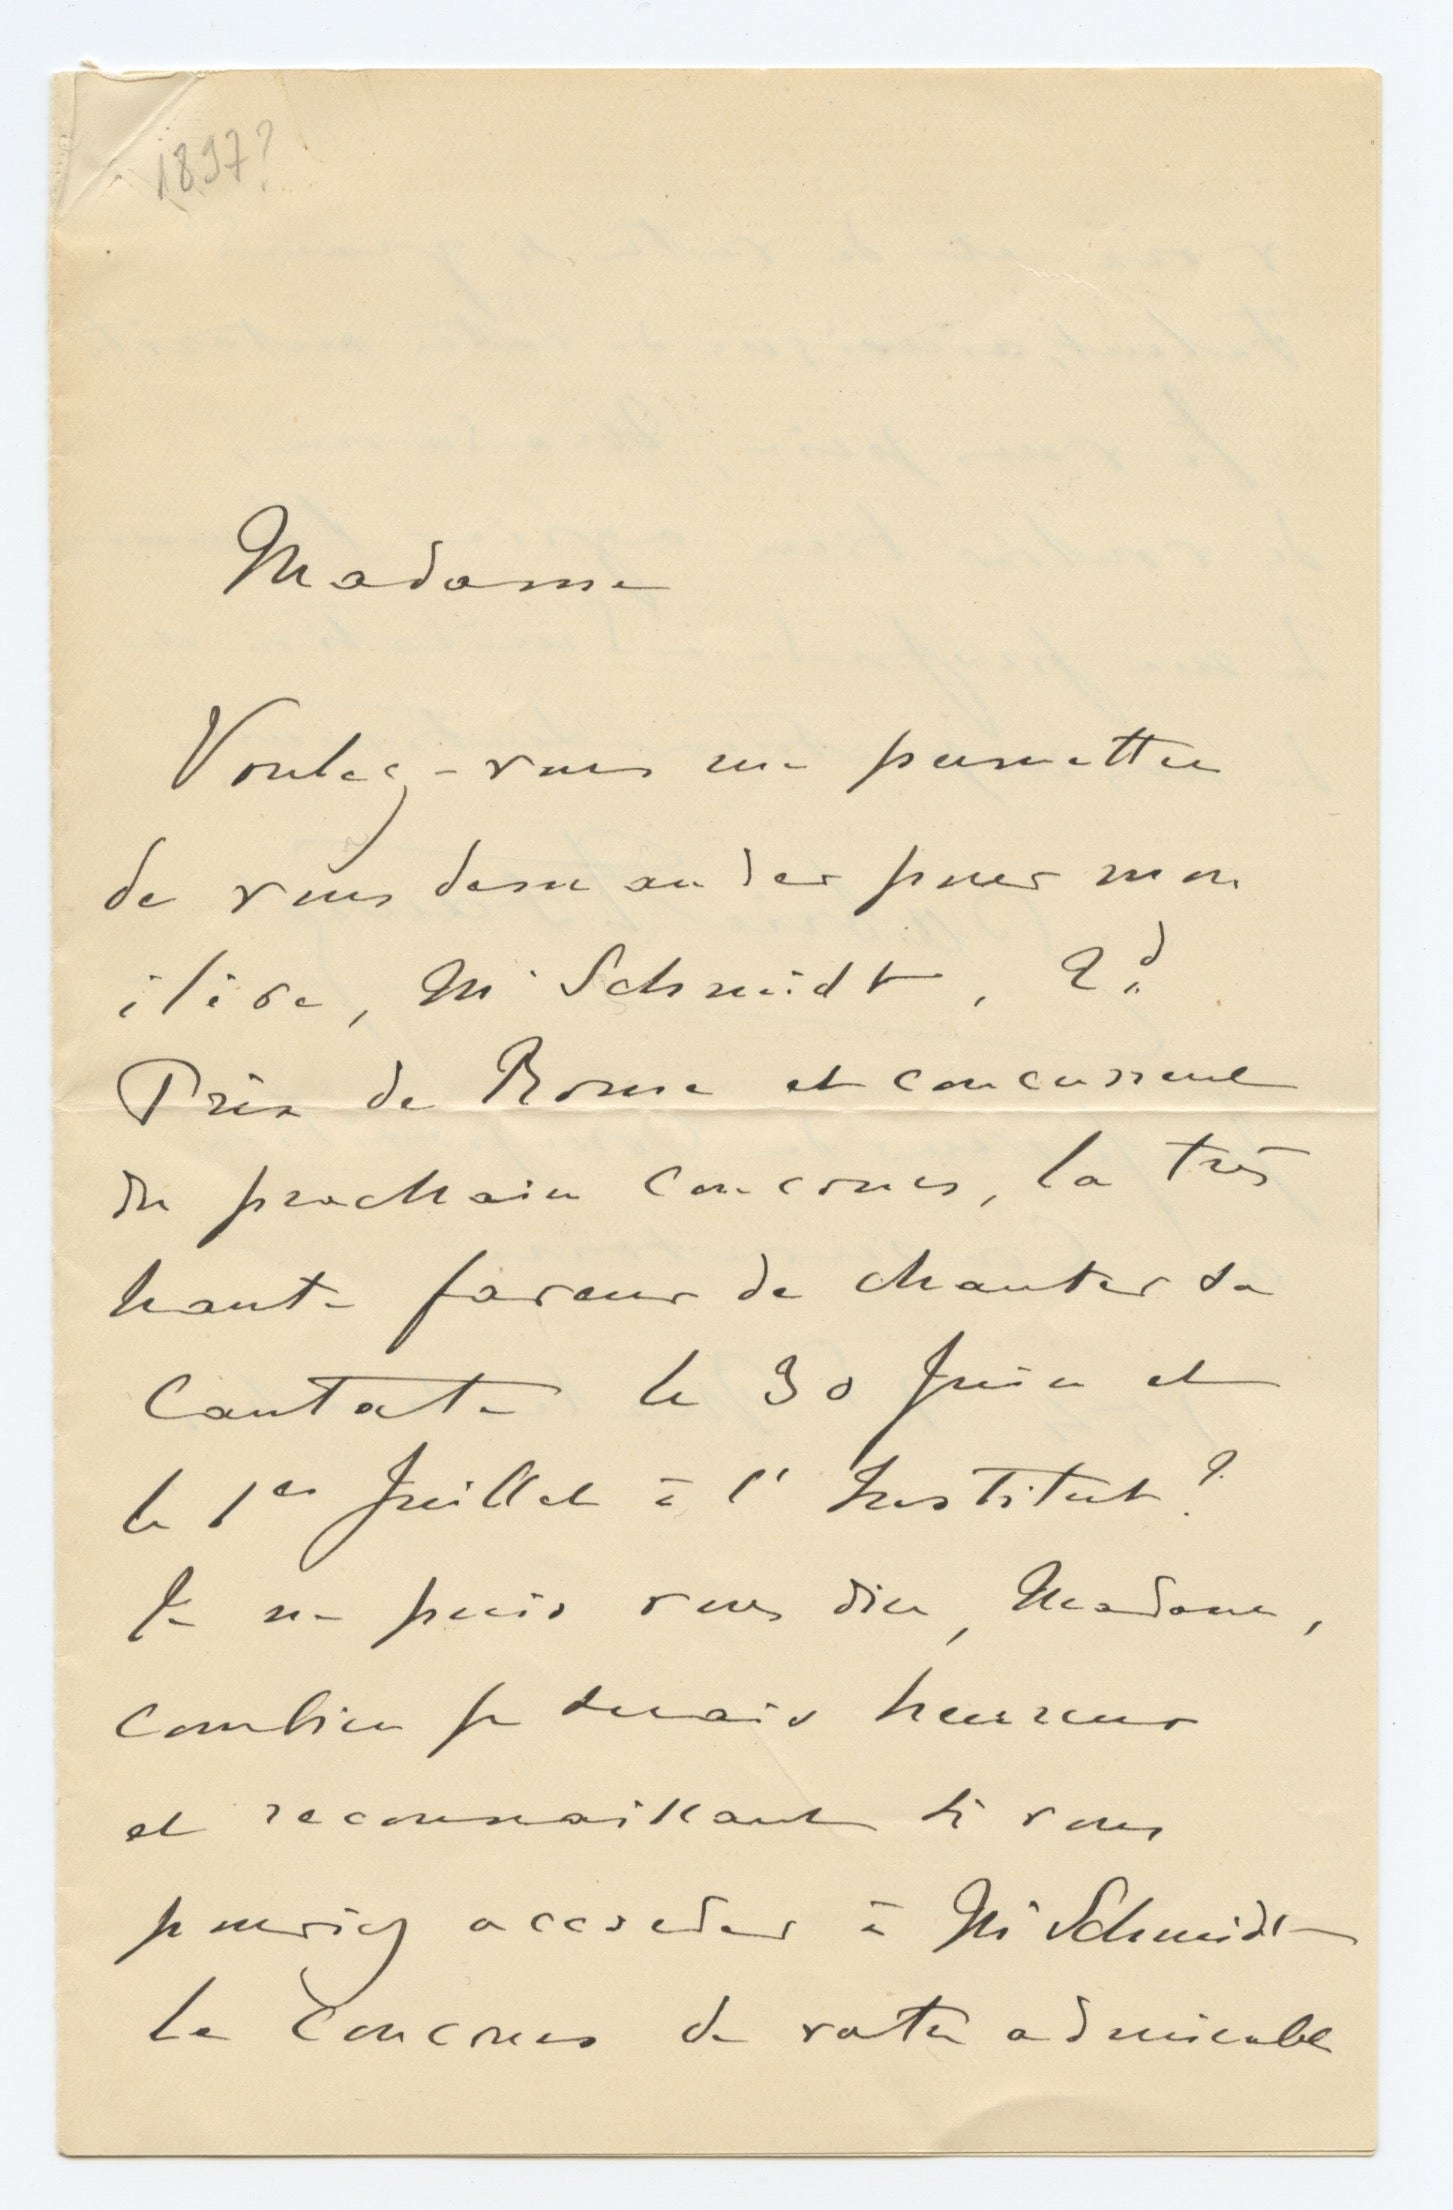 1897?
Madame
Voulez-vous me permettre
de vous demander pour mon
élève, Mr Schmidt, 2d
Prix de Rome et concurrent
du prochain concours, la très
haute faveur de chanter sa
Cantate le 30 Juin et
le 1er Juillet à l'Institut?
Je ne puis vous dire, Madame,
combien je serais heureux
et reconnaissant si vous
pouviez accorder à Mr Schmidt
le concours de votre admirable